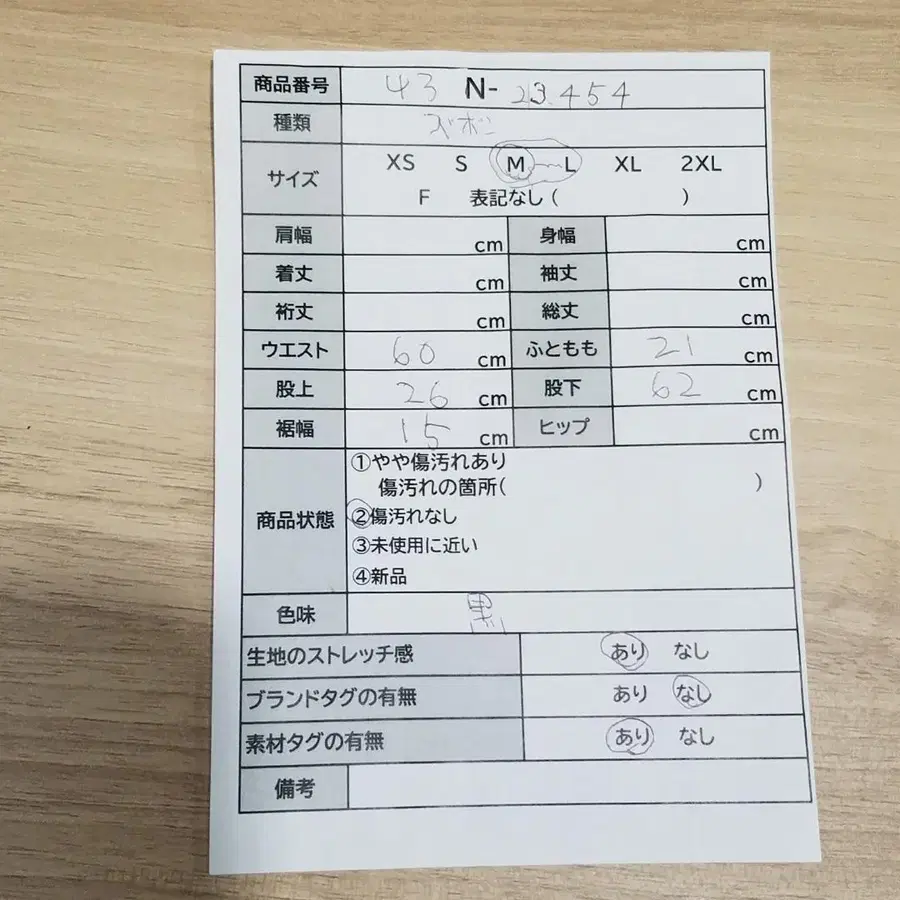 商品番号 43 N- 23454
種類 ズボン
サイズ XS S M L XL 2XL
F 表記なし ( )
肩幅 cm 身幅 cm
着丈 cm 袖丈 cm
裄丈 cm 総丈 cm
ウエスト 60 cm ふともも 21 cm
股上 26 cm 股下 62 cm
裾幅 15 cm ヒップ cm
商品状態 ①やや傷汚れあり
傷汚れの箇所( )
②傷汚れなし
③未使用に近い
④新品
色味 黒
生地のストレッチ感 あり なし
ブランドタグの有無 あり なし
素材タグの有無 あり なし
備考